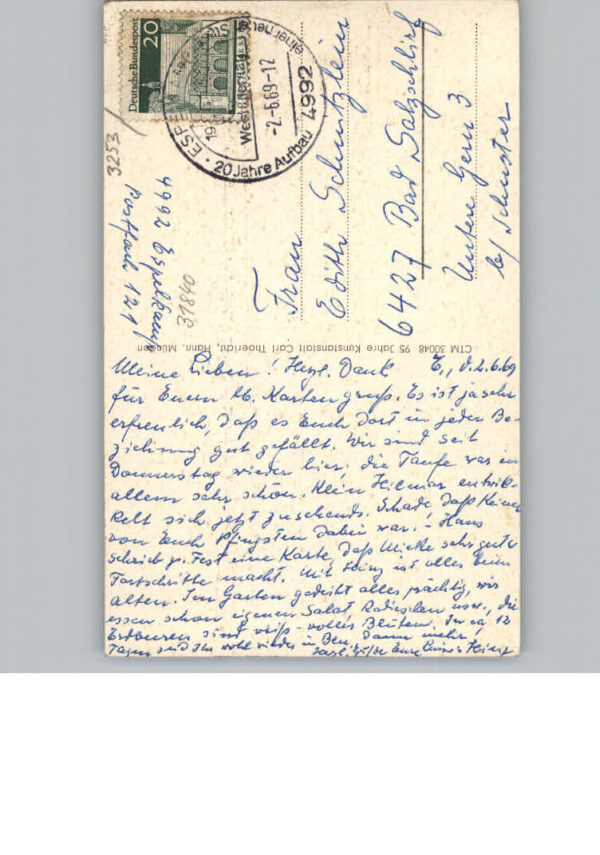 Deutsche Bundespost
20
Westfalentag
-2.-6.69-12
20 Jahre Aufbau
4992
3253
4992 Espelkamp
Postfach 121
31840
Frau
Edith Schnitzlein
6427 Bad Salzschlirf
Untere Gern 3
b/ Schuster
CTM 30048 95 Jahre Kunstanstalt Carl Thoericht, Hann. Münden
Meine Lieben! Herzl. Dank E., d. 2.6.69
für Euern lb. Kartengruß. Es ist ja sehr
erfreulich, daß es Euch dort in jeder Be-
ziehung gut gefällt. Wir sind seit
Donnerstag wieder hier, die Taufe war in
allem sehr schön. Klein Hilmar entwik-
kelt sich jetzt zusehends. Schade, daß keiner
von Euch Pfingsten dabei war. - Hans
schrieb z. Fest eine Karte, daß Mieke sehr gute
Fortschritte macht. Mit Heinz ist alles beim
alten. Im Garten gedeiht alles prächtig, wir
essen schon eigenen Salat Radieschen usw., die
Erdbeeren sind weiß - voller Blüten. In ca. 12
Tagen seid Ihr wohl wieder in Ben. Dann mehr!
Herzl. Grüße Eure + Heinz